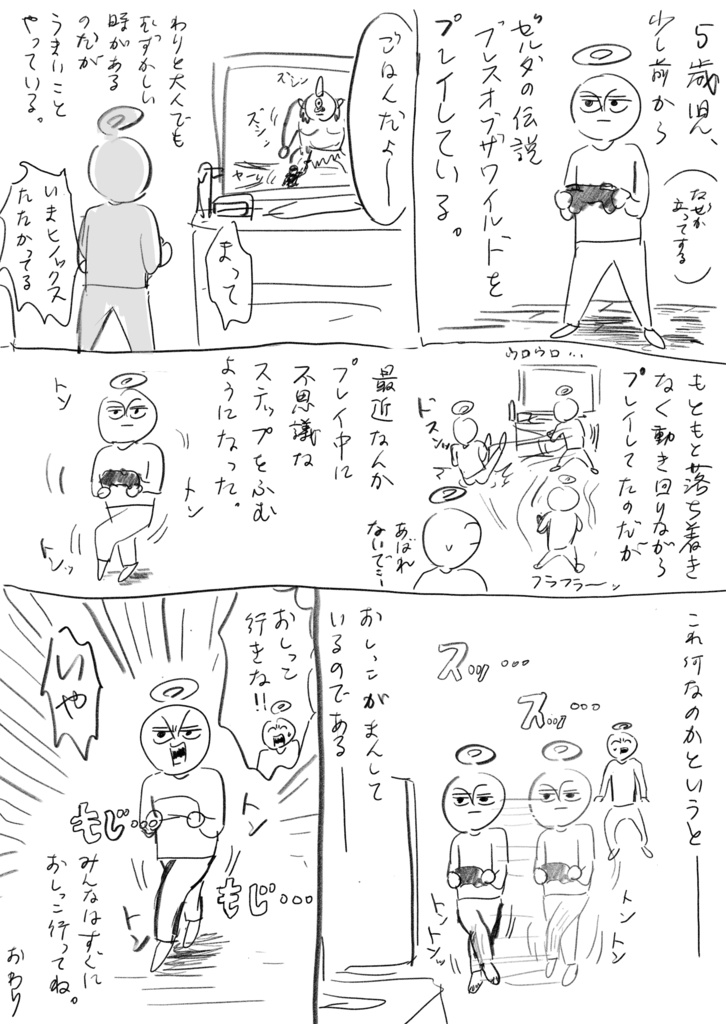 5歳児、
少し前から
(なぜか
立ってする)
ゼルダの伝説
ブレスオブザワイルドを
プレイしている。
ごはんだよ〜
ズシン
ズシン
やーっ
まって
わりと大人でも
むずかしい
時がある
のだが
うまいこと
やっている。
いまヒノックス
たたかってる
もともと落ち着き
なく動き回りながら
プレイしてたのだが
ウロウロ…
ドスンッ
フラフラ〜ッ
あばれ
ないで〜
最近なんか
プレイ中に
不思議な
ステップをふむ
ようになった。
トン
トン
トンッ
これ何なのかというと
スッ…
スッ…
トン
トン
トン
トンッ
おしっこがまんして
いるのである
おしっこ
行きな!!
いや
トン
トン
もじ…
もじ…
みんなはすぐに
おしっこ行ってね。
おわり